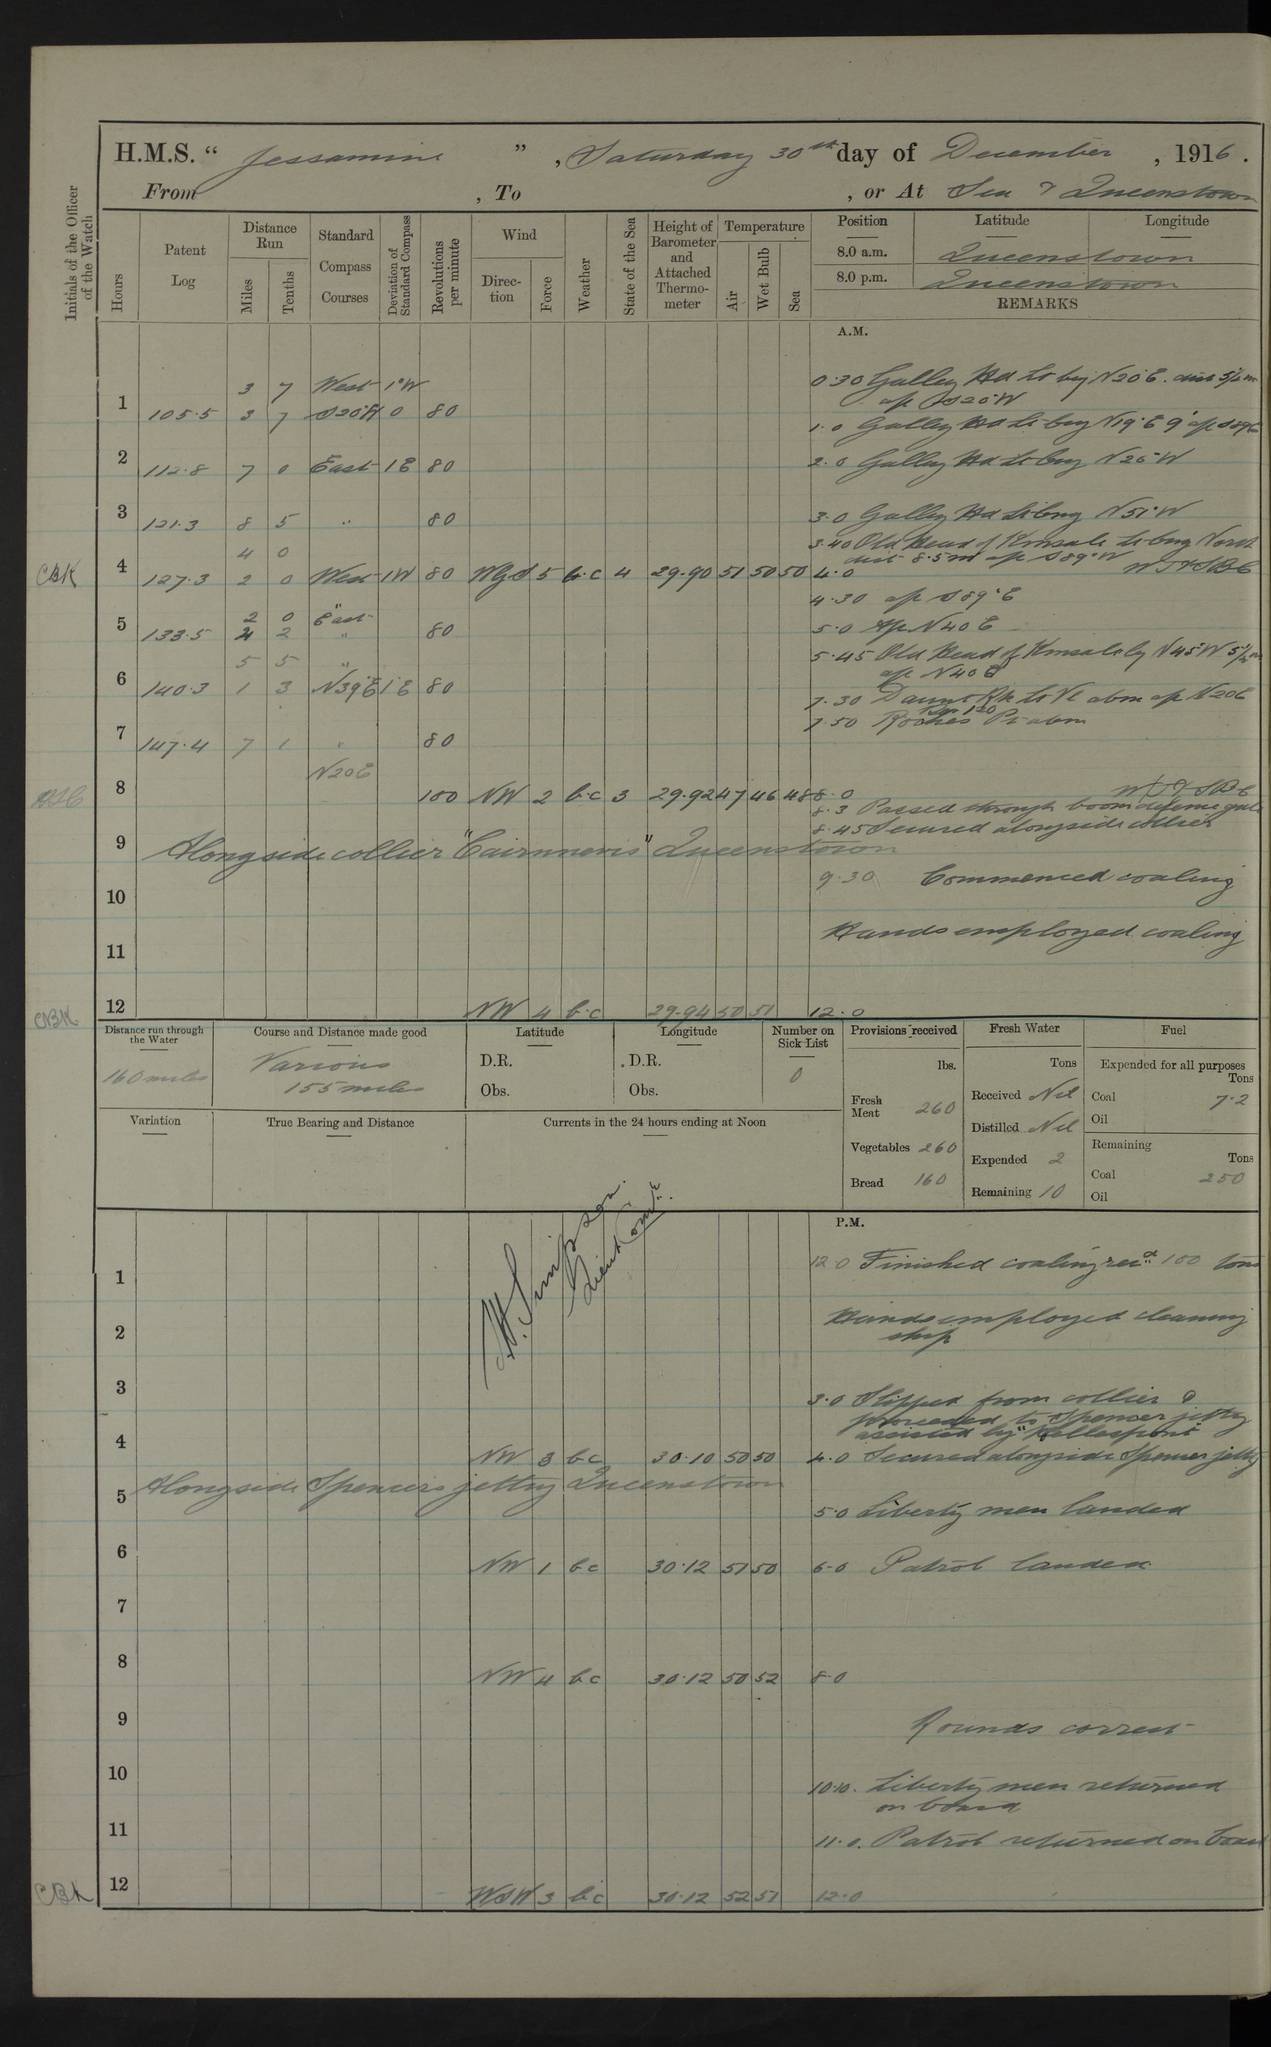 H.M.S. “ Jessamine ” , Saturday 30th day of December , 1916 .
From , To , or At Sea & Queenstown
Initials of the Officer of the Watch
Hours
Patent Log
Distance Run
Miles
Tenths
Standard Compass Courses
Deviation of Standard Compass
Revolutions per minute
Wind
Direction
Force
Weather
State of the Sea
Height of Barometer and Attached Thermometer
Temperature
Air
Wet Bulb
Sea
Position Latitude Longitude
8.0 a.m. Queenstown
8.0 p.m. Queenstown
REMARKS
A.M.
3 7 West 1°W
0.30 Galley Hd Lt brg N20°E. dist 5½m
a/c S20°W
1 105.5 3 7 S20°W 0 80
1.0 Galley Hd Lt brg N19°E 9' a/c S89°E
2 112.8 7 0 East 1E 80 2.0 Galley Hd Lt brg N25°W
3 121.3 8 5 " 80 3.0 Galley Hd Lt brg N51°W
4 0
3.40 Old Head of Kinsale Lt brg North
dist 8.5m a/c S89°W
CBK 4 127.3 2 0 West 1W 80 WGS 5 b.c 4 29.90 51 50 50 4.0
4.30 a/c S89°E
2 0 East
5 133.5 4 2 " 80 5.0 A/c N40E
5 5 "
5.45 Old Head of Kinsale brg N45°W 5½m
a/c N40E
6 140.3 1 3 N39°E 1°E 80
7.30 Daunt Rk Lt Vl abm a/c N20E
7.50 Roches Pt abm
7 147.4 7 1 " 80
N20E
8 100 NW 2 b.c 3 29.92 47 46 48 8.0
8.3 Passed through boom defence gate
8.45 Secured alongside collier
9 Alongside collier "Cairnnevis" Queenstown
9.30 Commenced coaling
10
Hands employed coaling
11
CBK 12 NW 4 b.c 29.94 50 51 12.0
Distance run through the Water
160 miles
Course and Distance made good
Various
155 miles
Latitude
D.R.
Obs.
Longitude
D.R.
Obs.
Number on Sick List
0
Provisions received
lbs.
Fresh Meat 260
Vegetables 260
Bread 160
Fresh Water
Tons
Received Nil
Distilled Nil
Expended 2
Remaining 10
Fuel
Expended for all purposes
Tons
Coal 7.2
Oil
Remaining
Tons
Coal 250
Oil
Variation
True Bearing and Distance
Currents in the 24 hours ending at Noon
P.M.
H. Simpson.
Lieut Comdr.
12.0 Finished coaling recd 100 tons
1
Hands employed cleaning
ship
2
3
3.0 Slipped from collier &
proceeded to Spencer jetty
assisted by "Hellespont"
4 NW 3 b.c 30.10 50 50 4.0 Secured alongside Spencer jetty
Alongside Spencers jetty Queenstown
5 5.0 Liberty men landed
6 NW 1 b.c 30.12 51 50 6.0 Patrol landed
7
8 NW 4 b.c 30.12 50 52 8.0
9 Rounds correct
10 10.10. Liberty men returned
on board
11 11.0. Patrol returned on board
CBK 12 WSW 3 b.c 30.12 52 51 12.0